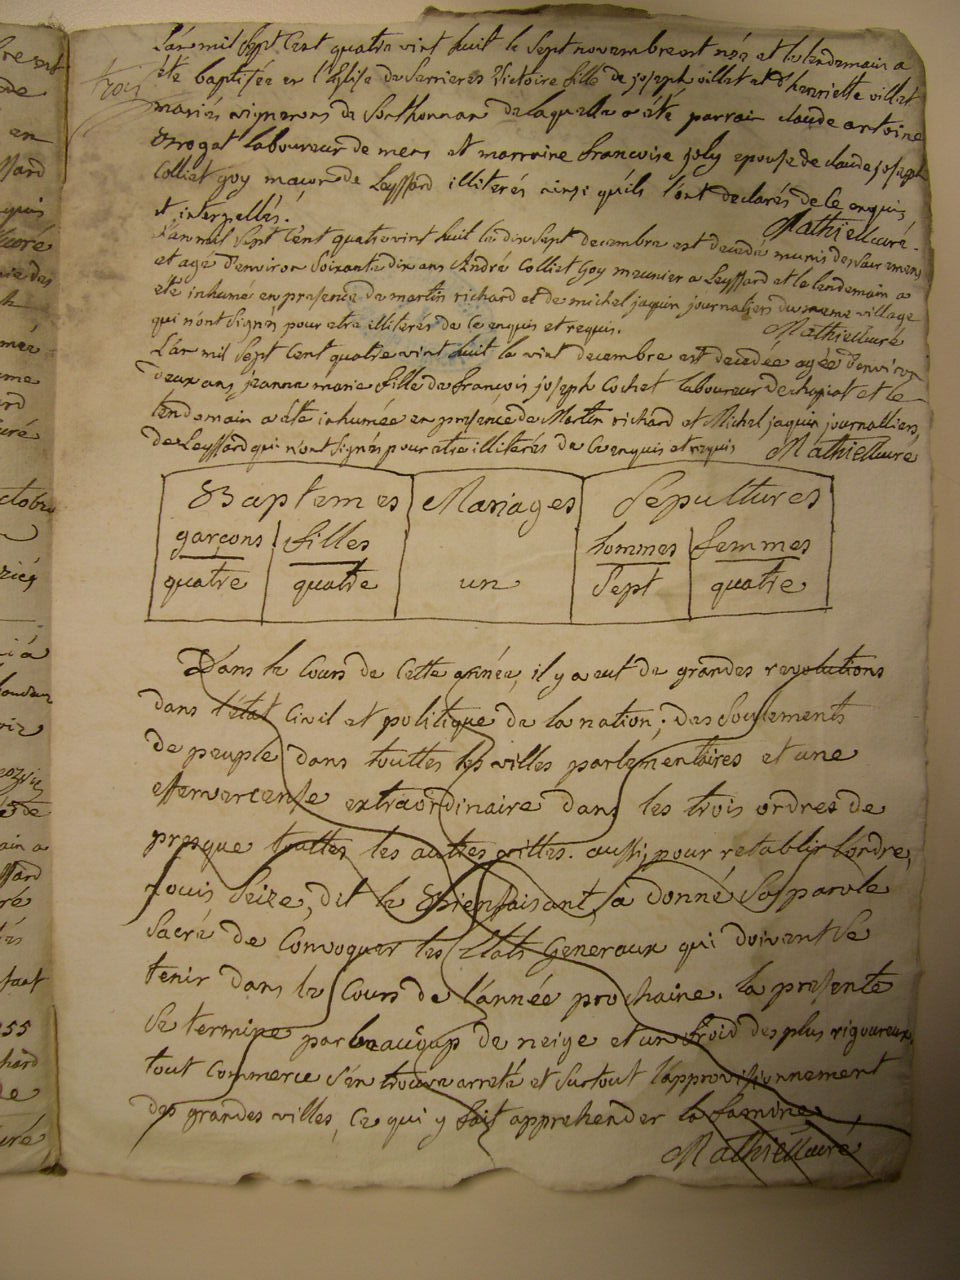 trois
L'an mil sept cent quatre vint huit le sept novembre est née et le lendemain a
été baptisée en l'Eglise de Serrieres Victoire fille de joseph villet et d'henriette villet
mariés vignerons de Sonthonnar de laquelle a été parrain claude antoine
Brogat laboureur de mens et marraine francoise joly epouse de claude joseph
Colliet goy maçon de Leyssard illiterés ainsi qu'ils l'ont declarés de ce enquis
et interpellés. Mathieu curé.
L'an mil sept cent quatre vint huit le dix sept decembre est decedé munis des sacremens
et agé d'environ soixante dix ans André Colliet Goy meunier a Leyssard et le lendemain a
été inhumé en presence de martin richard et de michel jaquin journaliers du meme village
qui n'ont signés pour etre illiterés de ce enquis et requis. Mathieu curé
L'an mil sept cent quatre vint huit le vint decembre est decedée agée d'environ
deux ans jeanne marie fille de francois joseph Cochet laboureur de chapiat et le
lendemain a été inhumée en presence de Martin richard et Michel jaquin journalliers
de Leyssard qui n'ont signés pour etre illiterés de ce enquis et requis Mathieu curé
Baptemes Mariages Sepultures
garçons filles hommes femmes
quatre quatre un Sept quatre
Dans le cours de cette année, il y a eut de grandes revolutions
dans l'état civil et politique de la nation; des soulements
de peuple dans touttes les villes parlementaires et une
effervercense extraordinaire dans les trois ordres de
presque touttes les autres villes. aussi, pour retablir l'ordre,
Louis Seize, dit le Bienfaisant, a donné sa parole
Sacré de Convoquer les Etats Generaux qui doivent se
tenir dans le cours de l'année prochaine. la presente
se termine par beaucoup de neige et un froid des plus rigoureux,
tout commerce s'en trouve arreté et surtout l'approvissionnement
des grandes villes, ce qui y fait apprehender la famine
Mathieu curé